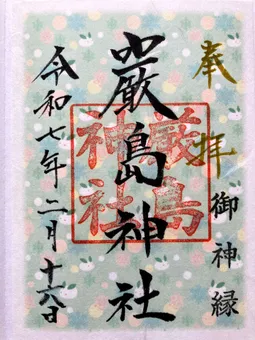 奉拝
御神縁
嚴島神社
嚴島神社
令和七年二月十六日